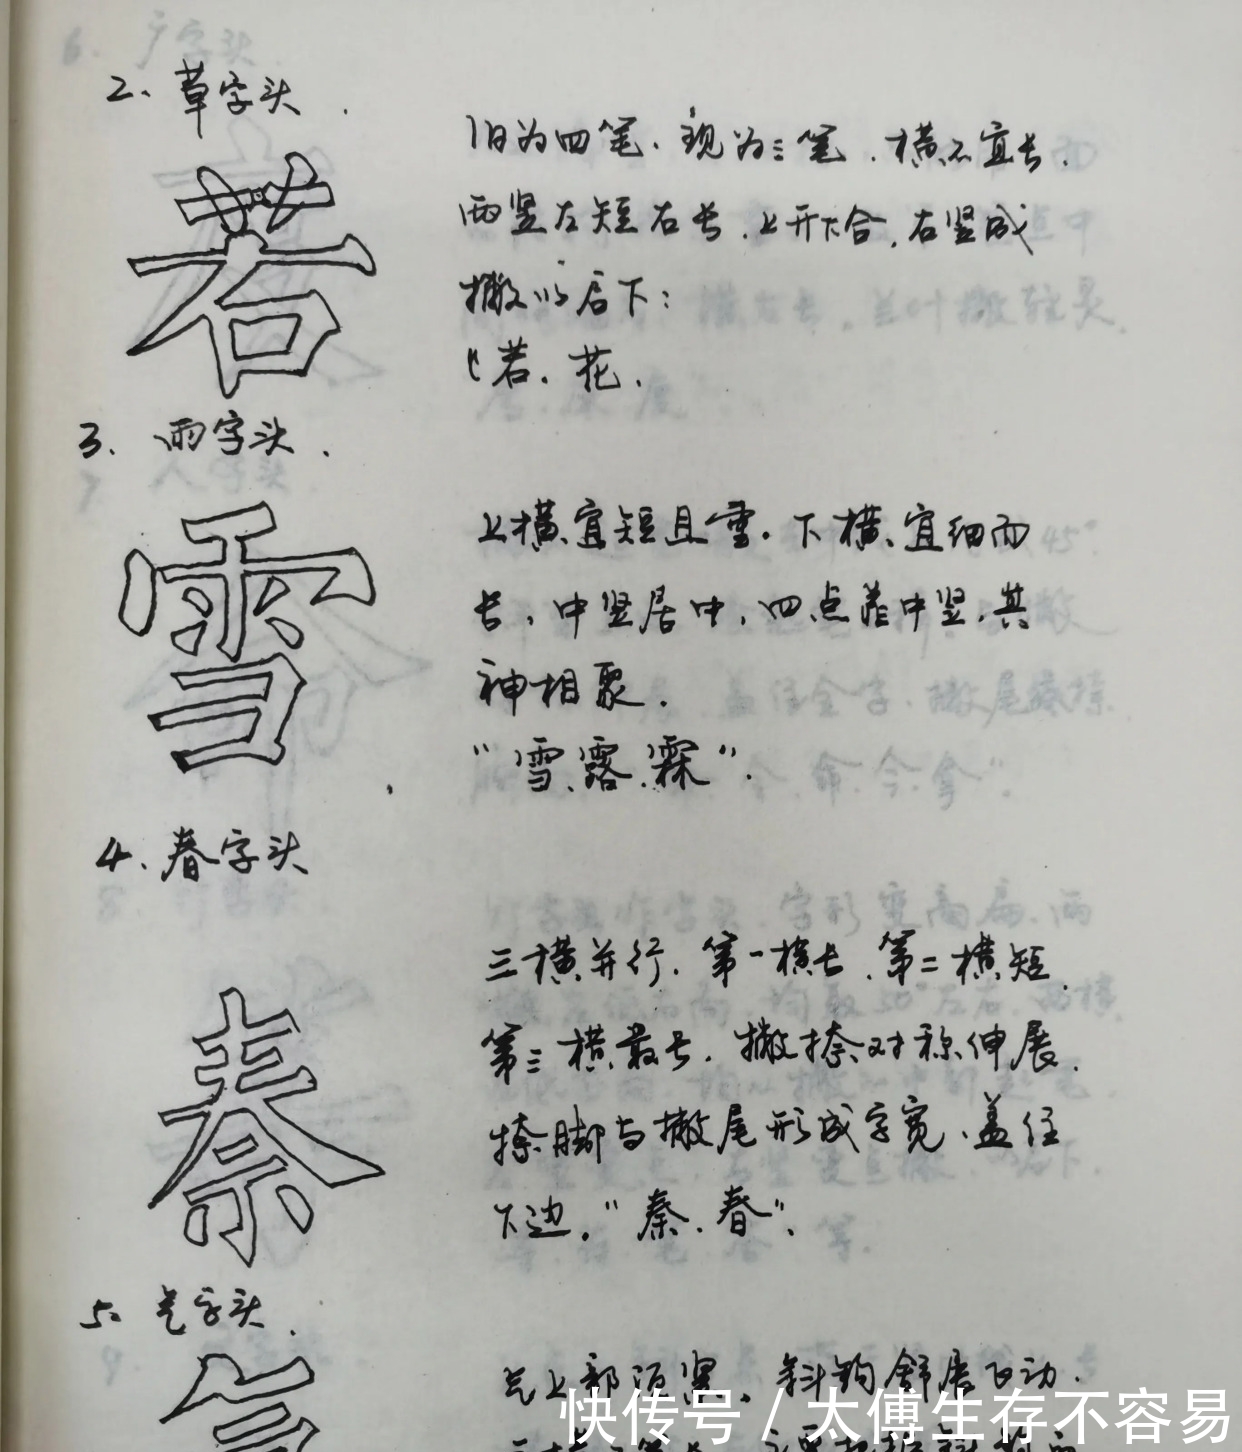 2、草字头.
若
旧为四笔.现为三笔.横不宜长.
两竖左短右长.上开下合.右竖成
撇以后下:
“若.花.
3.雨字头.
雪
上横宜短且重.下横宜细而
长,中竖居中,四点靠中竖,其
神相聚.
“雪.露.霖”.
4、春字头
秦
三横并行.第一横长.第二横短.
第三横最长.撇捺对称伸展.
捺脚与撇尾形成字宽、盖住
下边.“秦.春”.
5.气字头.
气上部 紧.斜钩舒展飞动.
快传号/太傅生存不容易